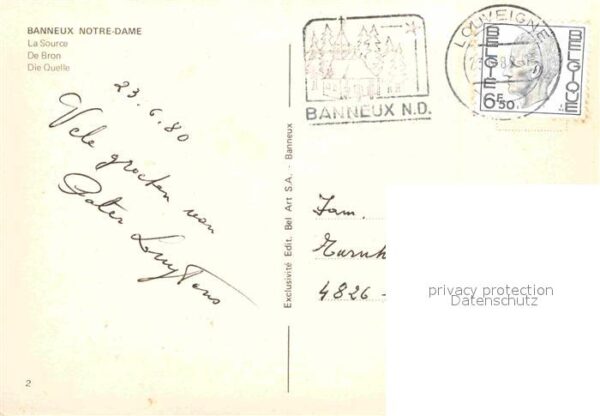 BANNEUX NOTRE-DAME
La Source
De Bron
Die Quelle
23.6.80
Vele groeten van
Pater Luytens
2
Exclusivité Edit. Bel Art S.A. - Banneux
BANNEUX N.D.
LOUVEIGNE
BELGIE
BELGIQUE
6F50
Fam.
4826 -
privacy protection
Datenschutz